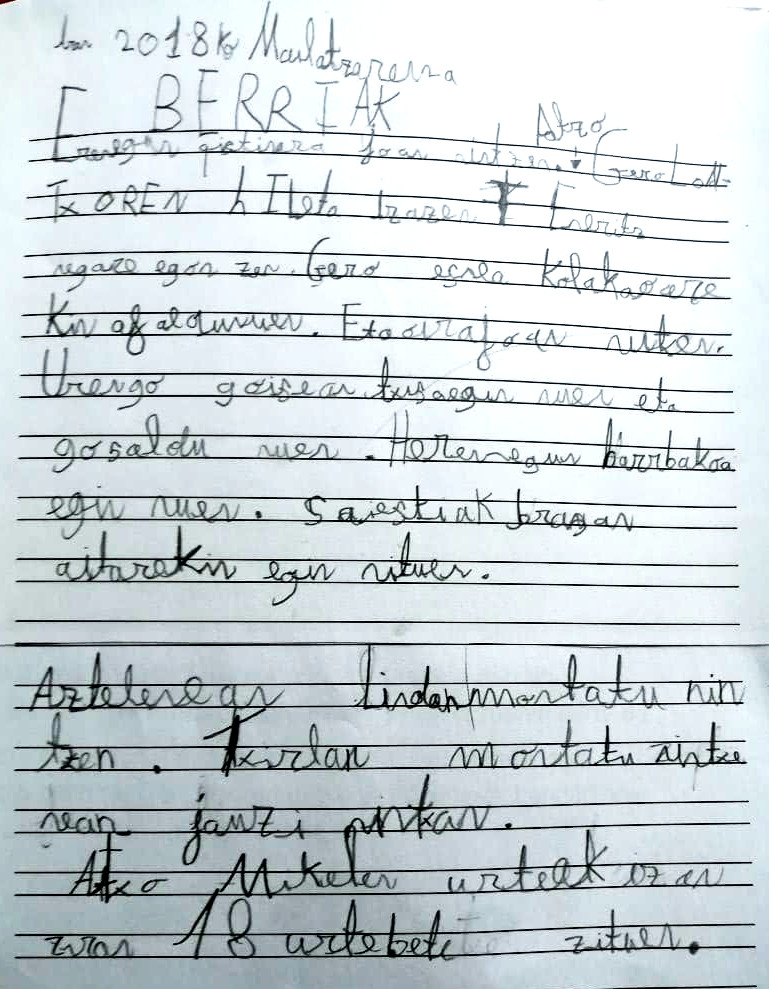 2018ko Maiatzaren 2a
BERRIAK
Atzo
Erenegun joan nintzen. Gero Lott
TxOREN hIleta izazen
negarez egon zen. Gero esnea Kolakaoare
Kin afaldunuen. Eta ovira joan nitzen.
Urengo goizean egin nuen eta
gosaldu nuen. Herenegun barrbakoa
egin nuen. Saiestiak
aitarekin egin nituen.
Aztelenean montatu nin
tzen. Txirlan montatu nintze
nean jauzi nitxan.
Atxo Mikelen urteak izan
ziran 18 urtebete zituen.